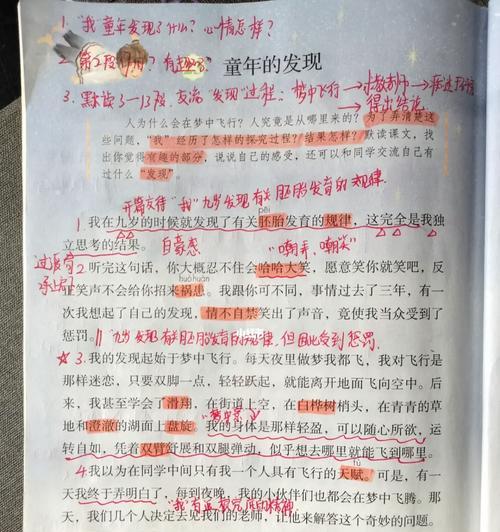 1. "我"童年发现了什么？心情怎样？
2. 第2段
童年的发现
3. 默读3—13段，交流"发现"过程：梦中飞行→
→得出结论
人为什么会在梦中飞行？人究竟是从哪里来的？为了弄清楚这
些问题，"我"经历了怎样的探究过程？结果怎样？默读课文，找
出你觉得有趣的部分，说说自己的感受，还可以和同学交流自己有
过什么"发现"。
开篇交待"我"九岁发现有关胚胎发育的规律.
pēi
1 我在九岁的时候就发现了有关胚胎发育的规律，这完全是我独
立思考的结果。 自豪感 "嘲弄、嘲笑"
过渡句
承上启下
2 听完这句话，你大概忍不住会哈哈大笑，愿意笑你就笑吧，反
huò huàn
正笑声不会给你招来祸患。我跟你可不同，事情过去了三年，有一
次我想起了自己的发现，情不自禁笑出了声音，竟使我当众受到了
惩罚。 九岁发现有关胚胎发育的规律，但因此受到惩罚.
☆3. 我的发现起始于梦中飞行。每天夜里做梦我都飞，我对飞行是
那样迷恋，只要双脚一点，轻轻跃起，就能离开地面飞向空中。后
来，我甚至学会了滑翔，在街道上空，在白桦树梢头，在青青的草
地和澄澈的湖面上盘旋。我的身体是那样轻盈，可以随心所欲，运
转自如，凭着双臂舒展和双腿弹动，似乎想去哪里就能飞到哪里。
fù
4 我以为在同学中间只有我一个人具有飞行的天赋。可是，有一
天我终于弄明白了，每到夜晚，我的小伙伴们也都会在梦中飞腾。那
"我"有
天，我们几个人决定去见我们的老师，让他来解答这个奇妙的问题。